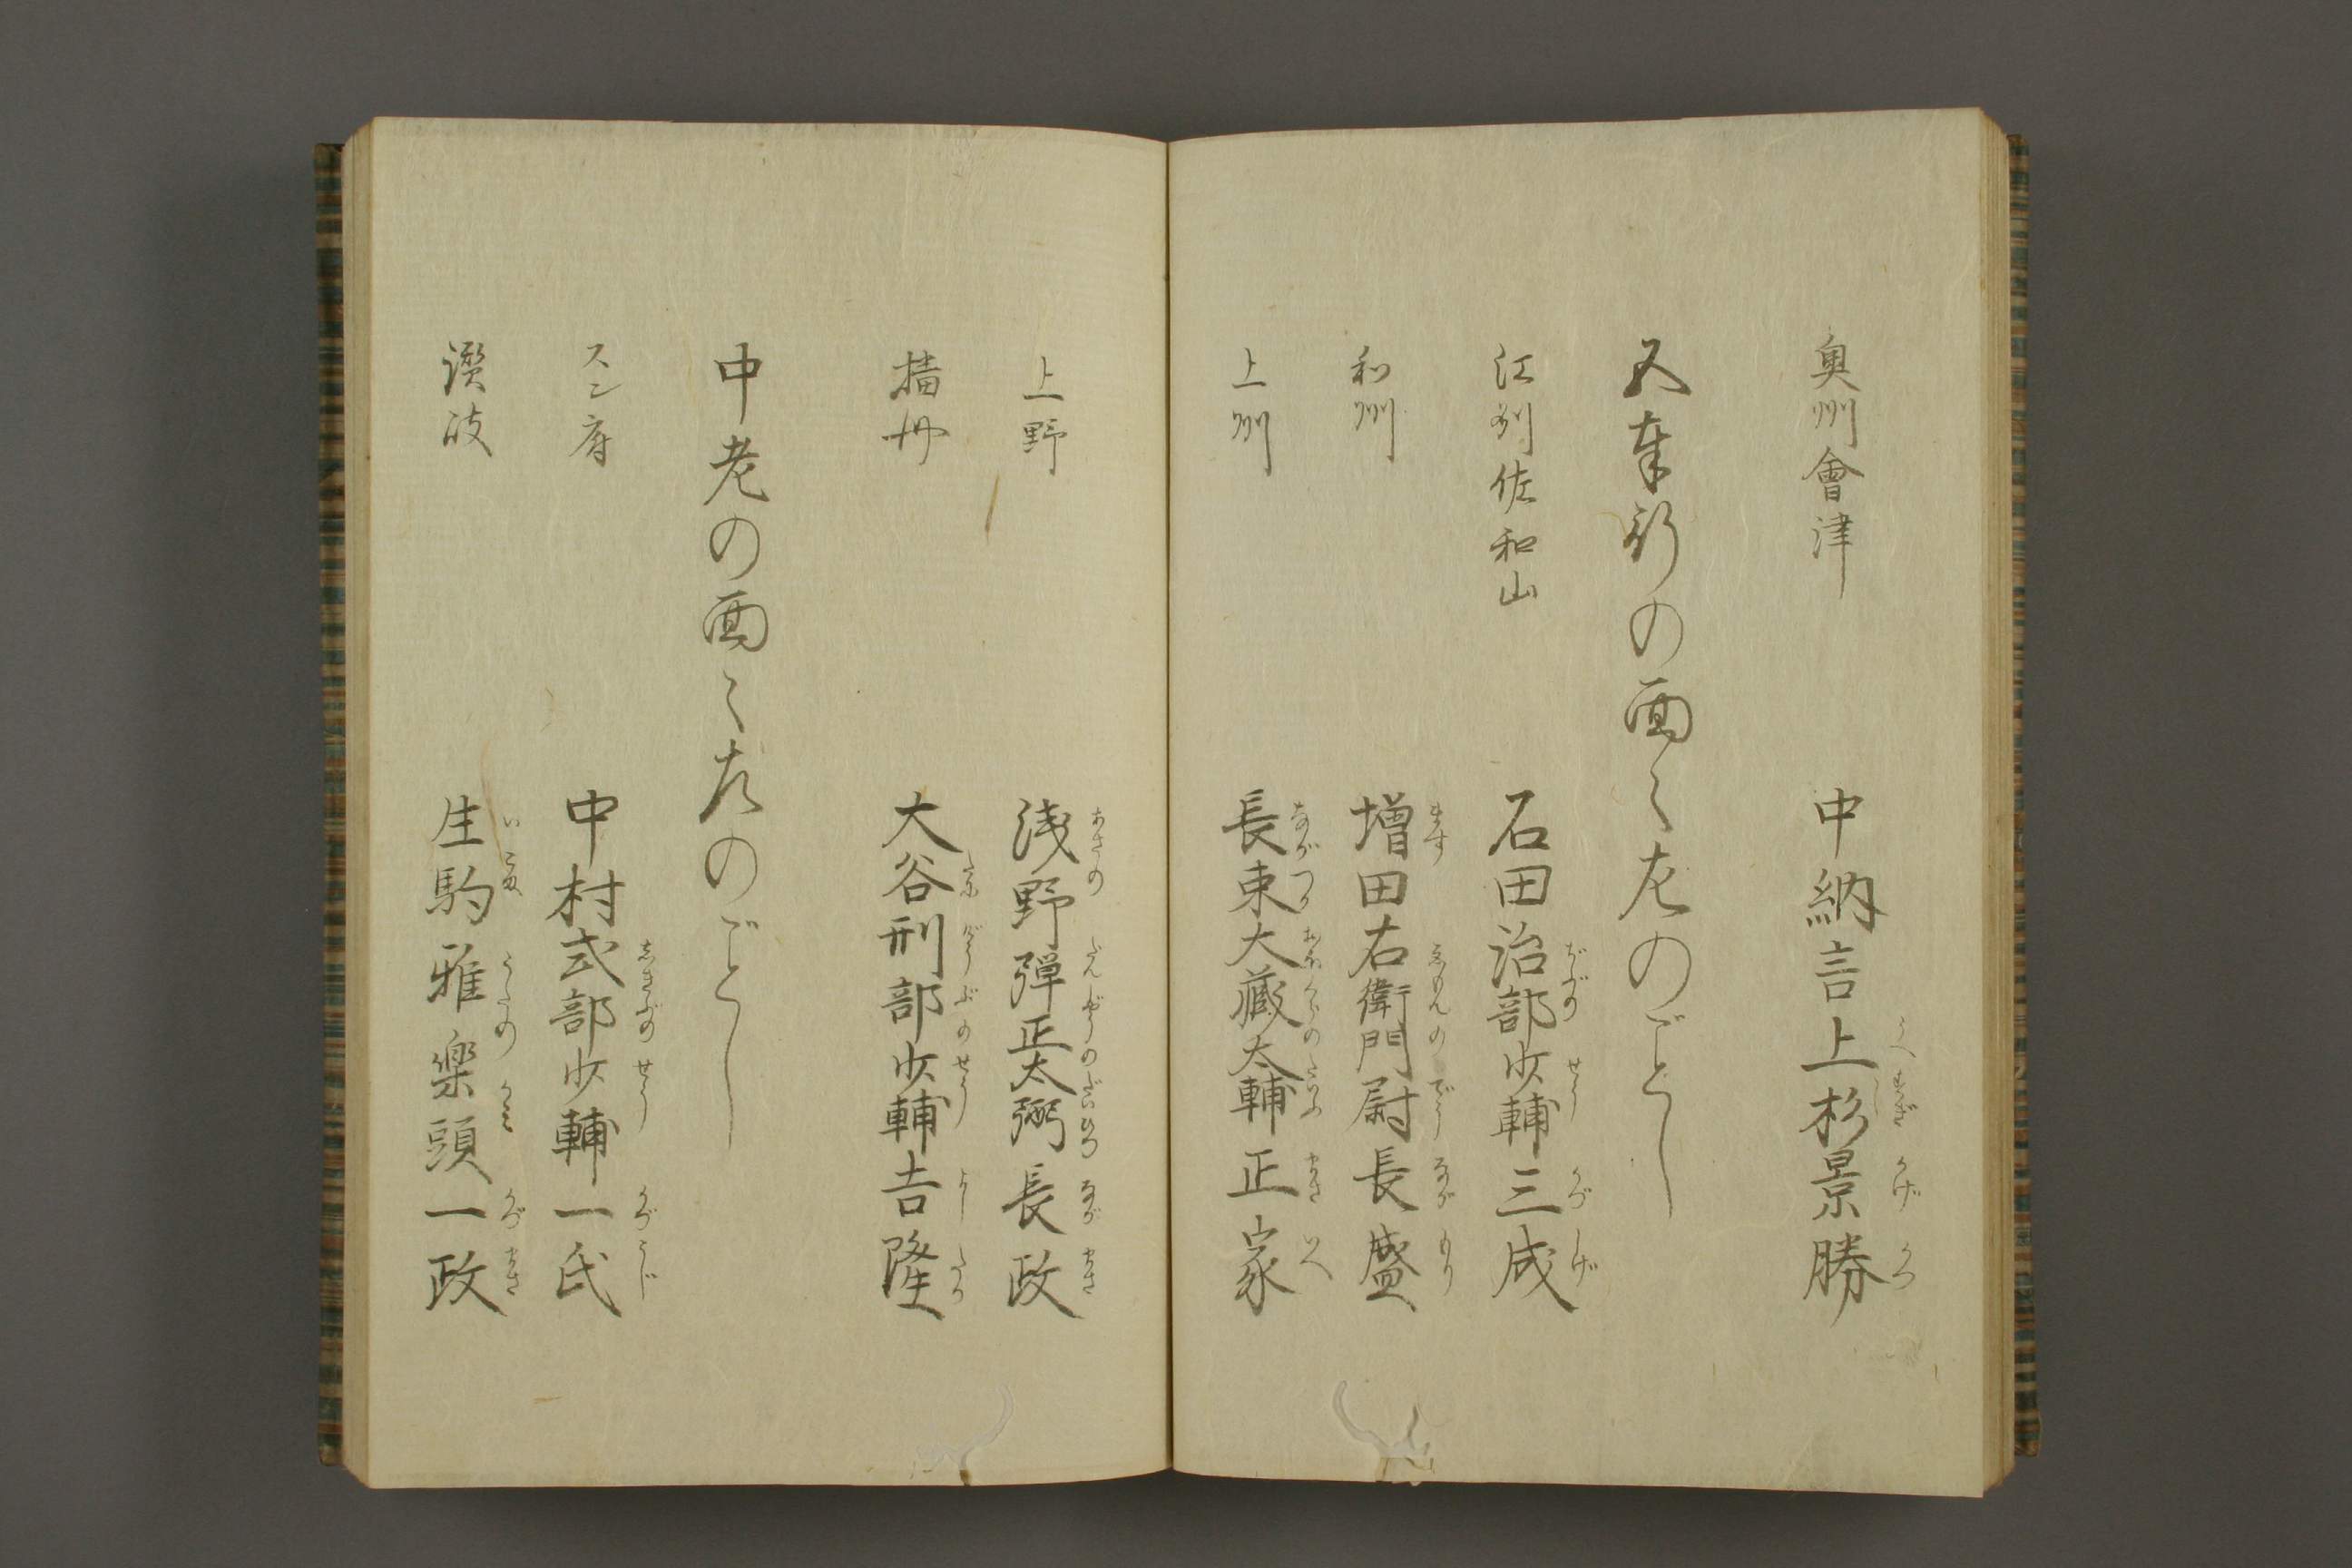 奥州會津 中納言上杉景勝
五奉行の面〻左のごとし
江州佐和山 石田治部少輔三成
和州 増田右衛門尉長盛
上州 長束大蔵太輔正家
上野 浅野弾正太弼長政
播州 大谷刑部少輔吉隆
中老の面〻左のごとし
スン府 中村式部少輔一氏
讃岐 生駒雅楽頭一政